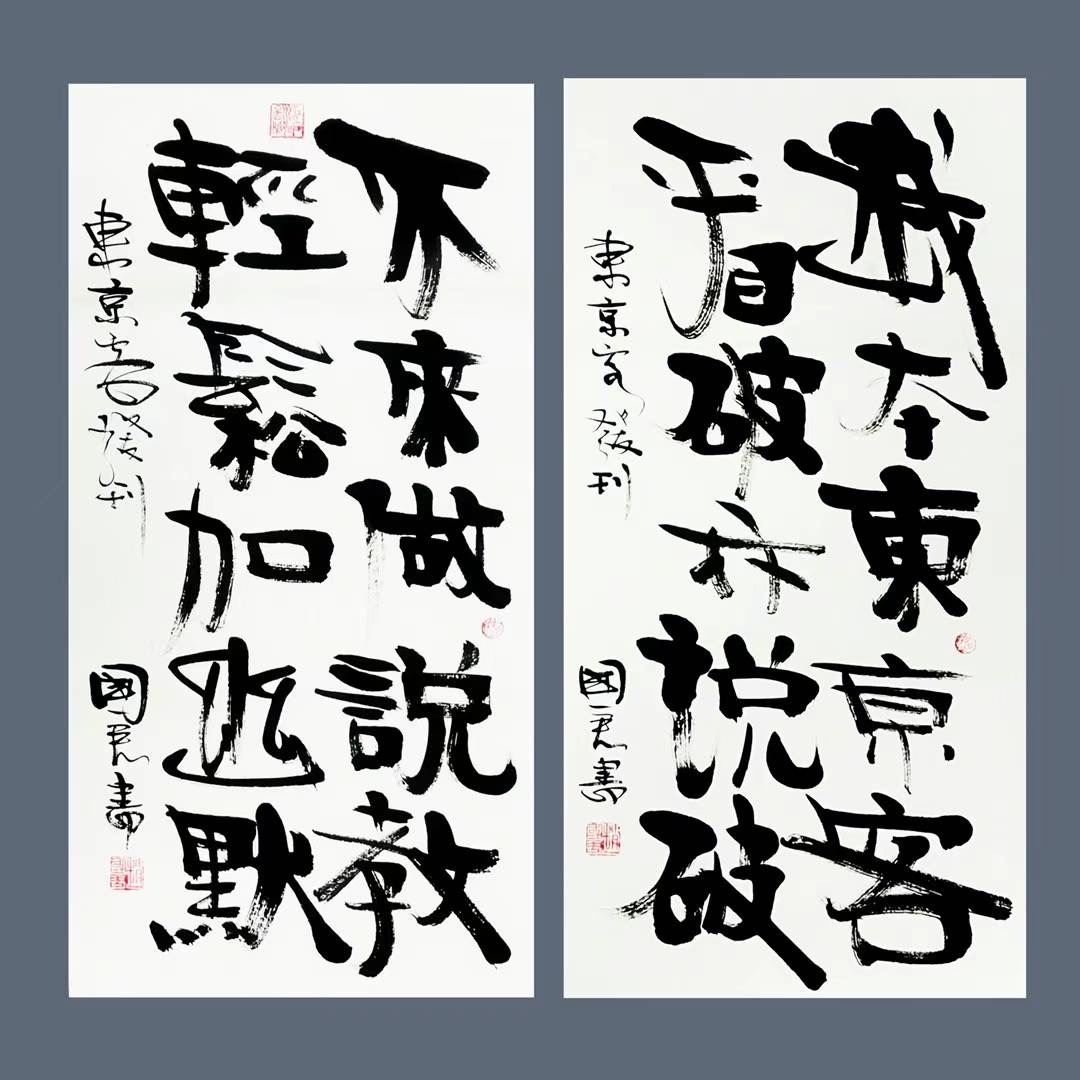 我本東京客
看破不説破
東京客發刊
國君書
不來做說教
輕鬆加幽默
東京客發刊
國君書